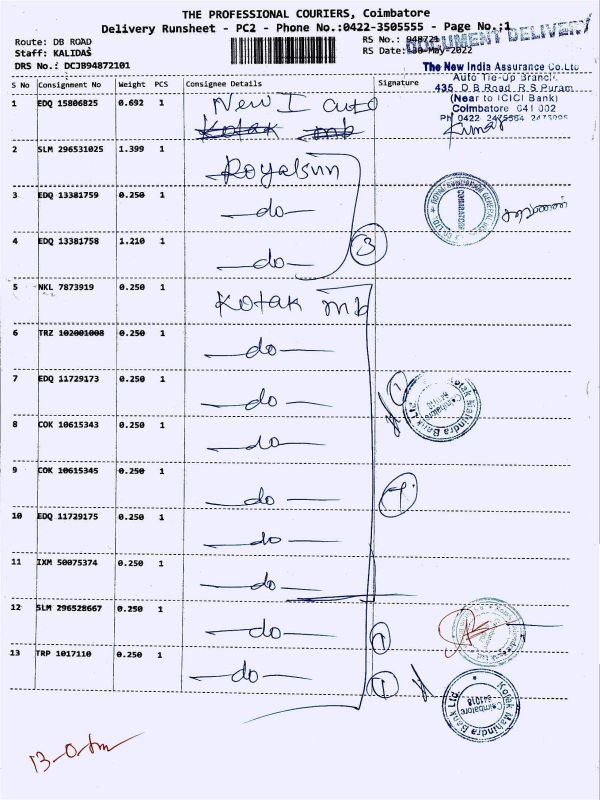 THE PROFESSIONAL COURIERS, Coimbatore
Delivery Runsheet - PC2 - Phone No.:0422-3505555 - Page No.:1
DOCUMENT DELIVERY
Route: DB ROAD
RS No.: 948721
Staff: KALIDAS
RS Date: 30-May-2022
DRS No.: DCJB94872101
The New India Assurance Co.Ltd
Auto Tie-Up Branch
435 D B Road R S Puram
(Near to ICICI Bank)
Coimbatore 641 002
Kumar
S No Consignment No Weight PCS Consignee Details Signature
1 EDQ 15806825 0.692 1 New I auto
Kotak mb
2 SLM 296531025 1.399 1 Royalsun
3 EDQ 13381759 0.250 1 —do—
4 EDQ 13381758 1.210 1 —do—
3
COIMBATORE
5 NKL 7873919 0.250 1 Kotak mb
6 TRZ 102001008 0.250 1 —do—
7 EDQ 11729173 0.250 1 —do—
8 COK 10615343 0.250 1 —do—
Kotak Mahindra Bank Ltd
Coimbatore
9 COK 10615345 0.250 1 —do—
10 EDQ 11729175 0.250 1 —do—
11 IXM 50075374 0.250 1 —do—
12 SLM 296528667 0.250 1 —do—
1
13 TRP 1017110 0.250 1 —do—
1
Kotak Mahindra Bank Ltd.
Coimbatore
641018